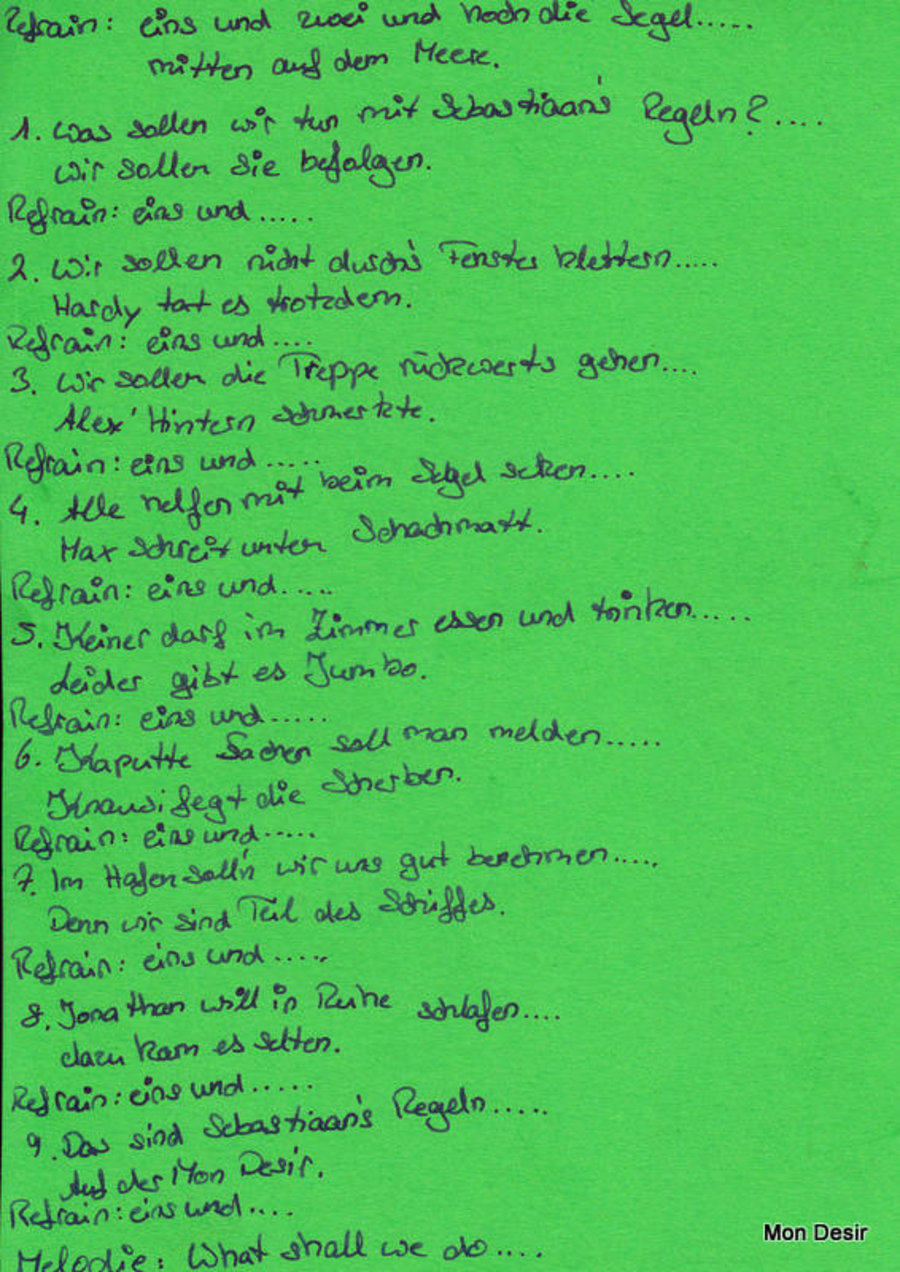 Refrain: eins und zwei und hoch die Segel.....
mitten auf dem Meere.
1. Was sollen wir tun mit Sebastiaan's Regeln?....
Wir sollen sie befolgen.
Refrain: eins und.....
2. Wir sollen nicht durch's Fenster klettern.....
Hardy tat es trotzdem.
Refrain: eins und....
3. Wir sollen die Treppe rückwerts gehen....
Alex' Hintern schmertzte.
Refrain: eins und.....
4. Alle helfen mit beim Segel setzen....
Max schreit unten Schachmatt.
Refrain: eins und.....
5. Keiner darf im Zimmer essen und trinken.....
Leider gibt es Jumbo.
Refrain: eins und.....
6. Kaputte Sachen soll man melden.....
Knausi fegt die Scherben.
Refrain: eins und.....
7. Im Hafen soll'n wir uns gut benehmen.....
Denn wir sind Teil des Schiffes.
Refrain: eins und.....
8. Jonathan will in Ruhe schlafen....
dazu kam es selten.
Refrain: eins und.....
9. Das sind Sebastiaan's Regeln.....
Auf der Mon Desir.
Refrain: eins und....
Melodie: What shall we do....
Mon Desir